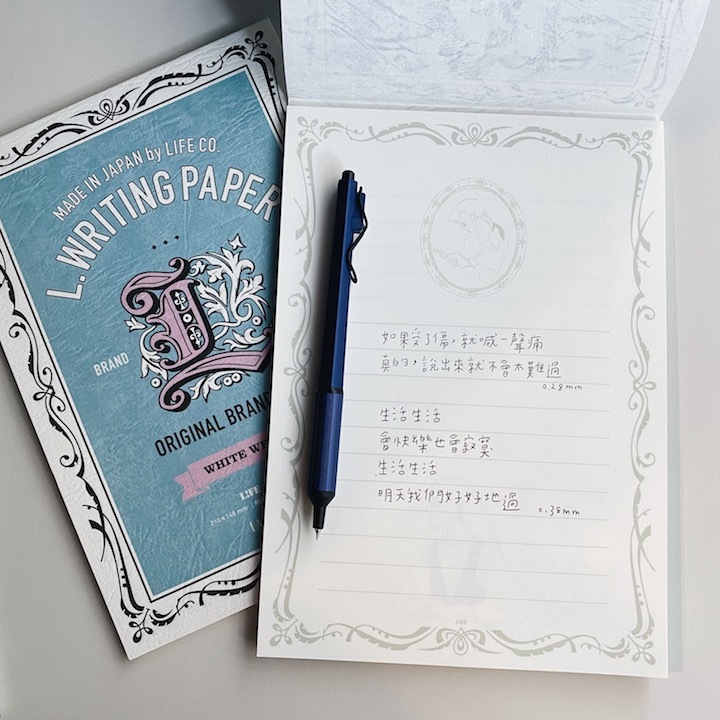 MADE IN JAPAN by LIFE CO.
L. WRITING PAPER
BRAND
L
ORIGINAL BRAND
WHITE
LIFE
210×148mm
如果受了傷，就喊一聲痛
真的，說出來就不會太難過
0.28mm
生活生活
會快樂也會寂寞
生活生活
明天我們好好地過
0.38mm
LIFE